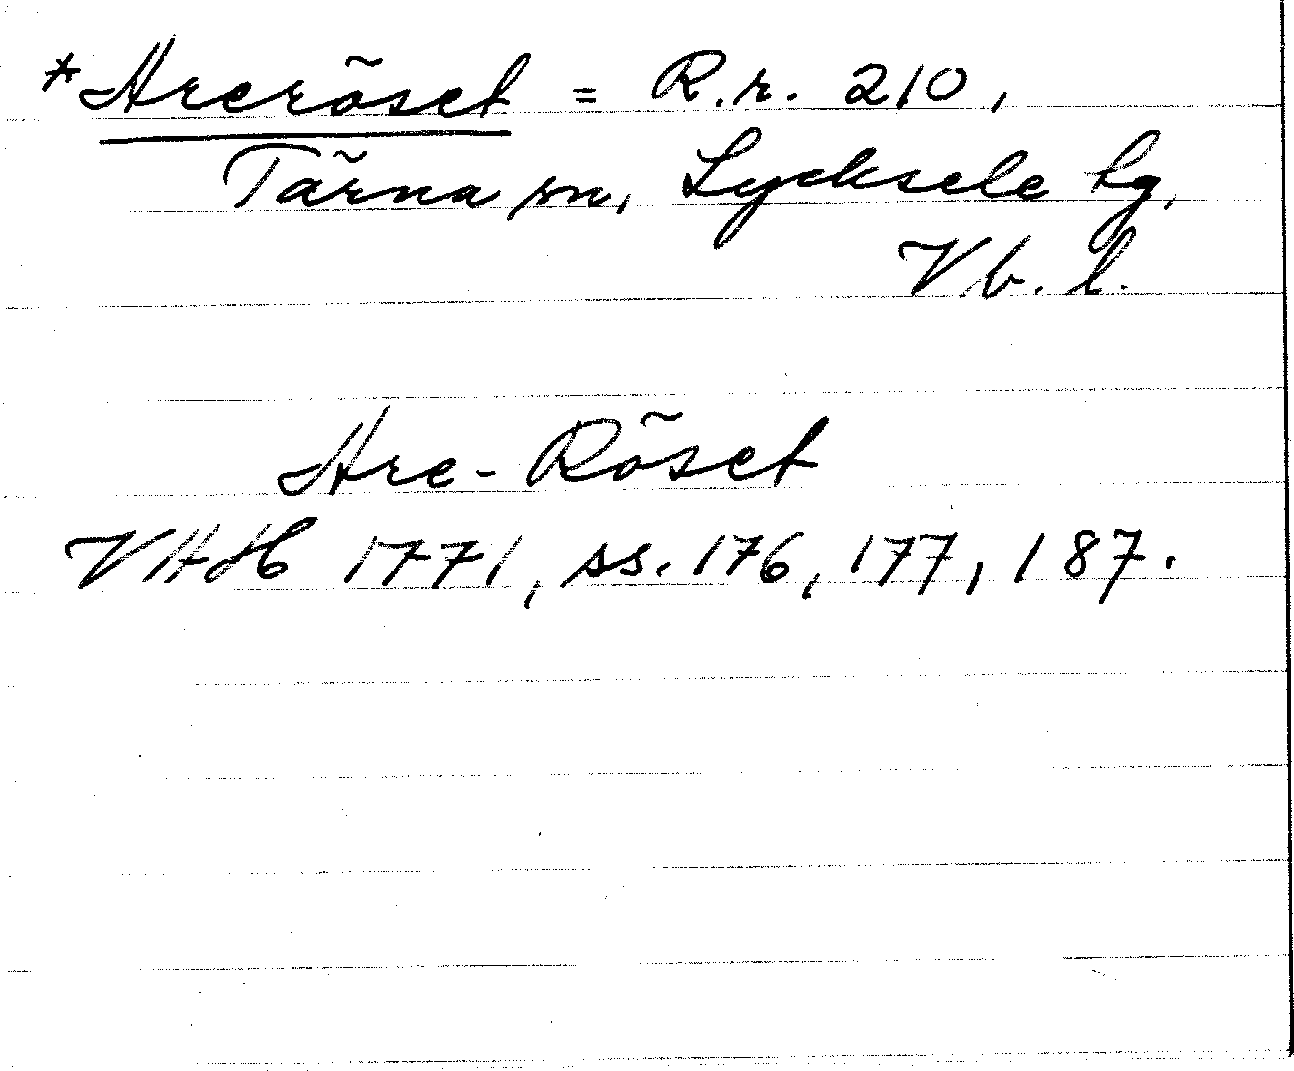 *Areröset = R.r. 210,
Tärna sn, Lycksele lg,
Vb. l.
Are-Röset
VHAH 1771, ss. 176, 177, 187.